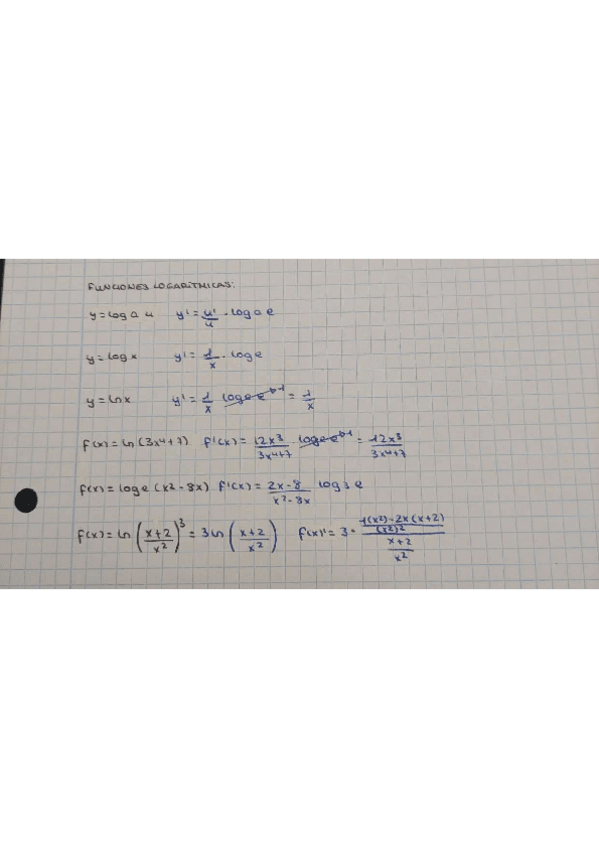 FUNCIONES LOGARÍTMICAS:
y = log a u   y' = u'/u · log a e
y = log x   y' = 1/x · log e
y = ln x   y' = 1/x log e e → 1 = 1/x
f(x) = ln (3x4+7)   f'(x) = 12x3/3x4+7 log e e → 1 = 12x3/3x4+7
f(x) = log e (x2 - 8x)   f'(x) = 2x-8/x2-8x log 3 e
f(x) = ln (x+2/x2)3 = 3 ln (x+2/x2)   f(x)' = 3 · 1(x2) - 2x(x+2)/(x2)2/x+2/x2